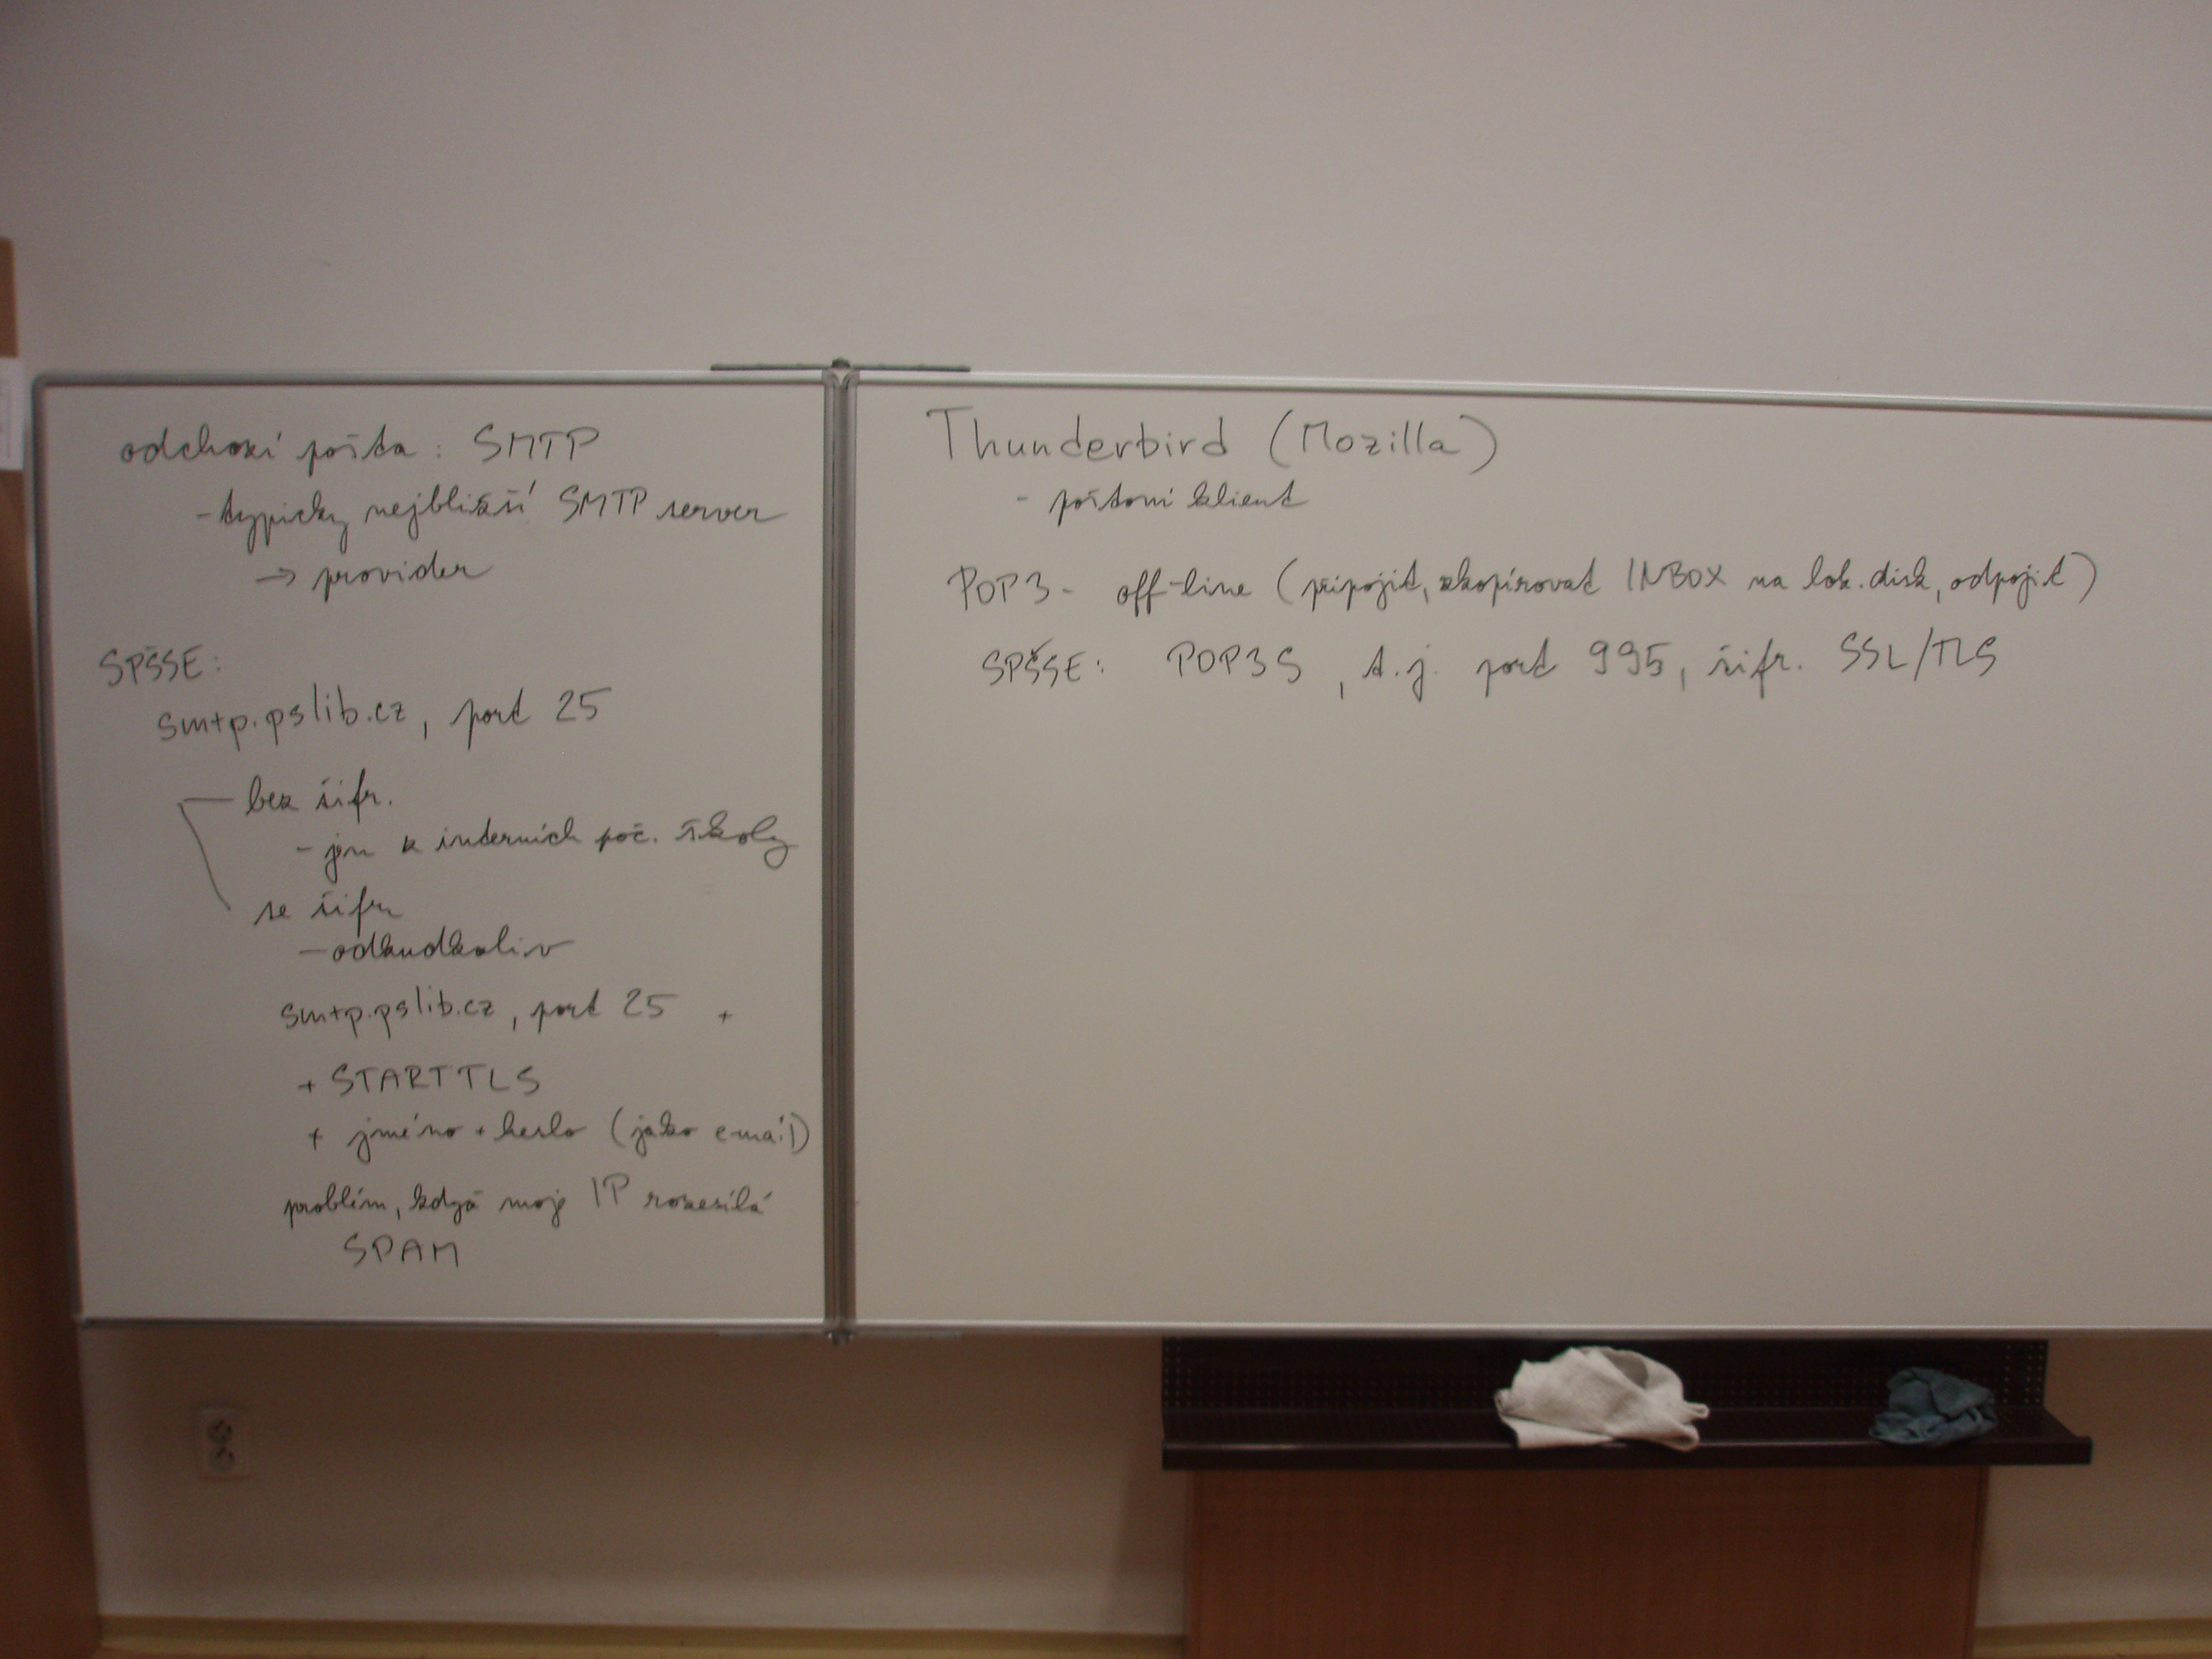 odchozí pošta : SMTP
- typicky nejbližší SMTP server
→ provider
SPŠSE:
smtp.pslib.cz, port 25
bez šifr.
- jen z interních poč. školy
se šifr.
- odkudkoliv
smtp.pslib.cz, port 25 +
+ STARTTLS
+ jméno + heslo (jako email)
problém, když moje IP rozesílá
SPAM
Thunderbird (Mozilla)
- poštovní klient
POP3 - off-line (připojit, zkopírovat INBOX na lok. disk, odpojit)
SPŠSE: POP3S, t.j. port 995, šifr. SSL/TLS